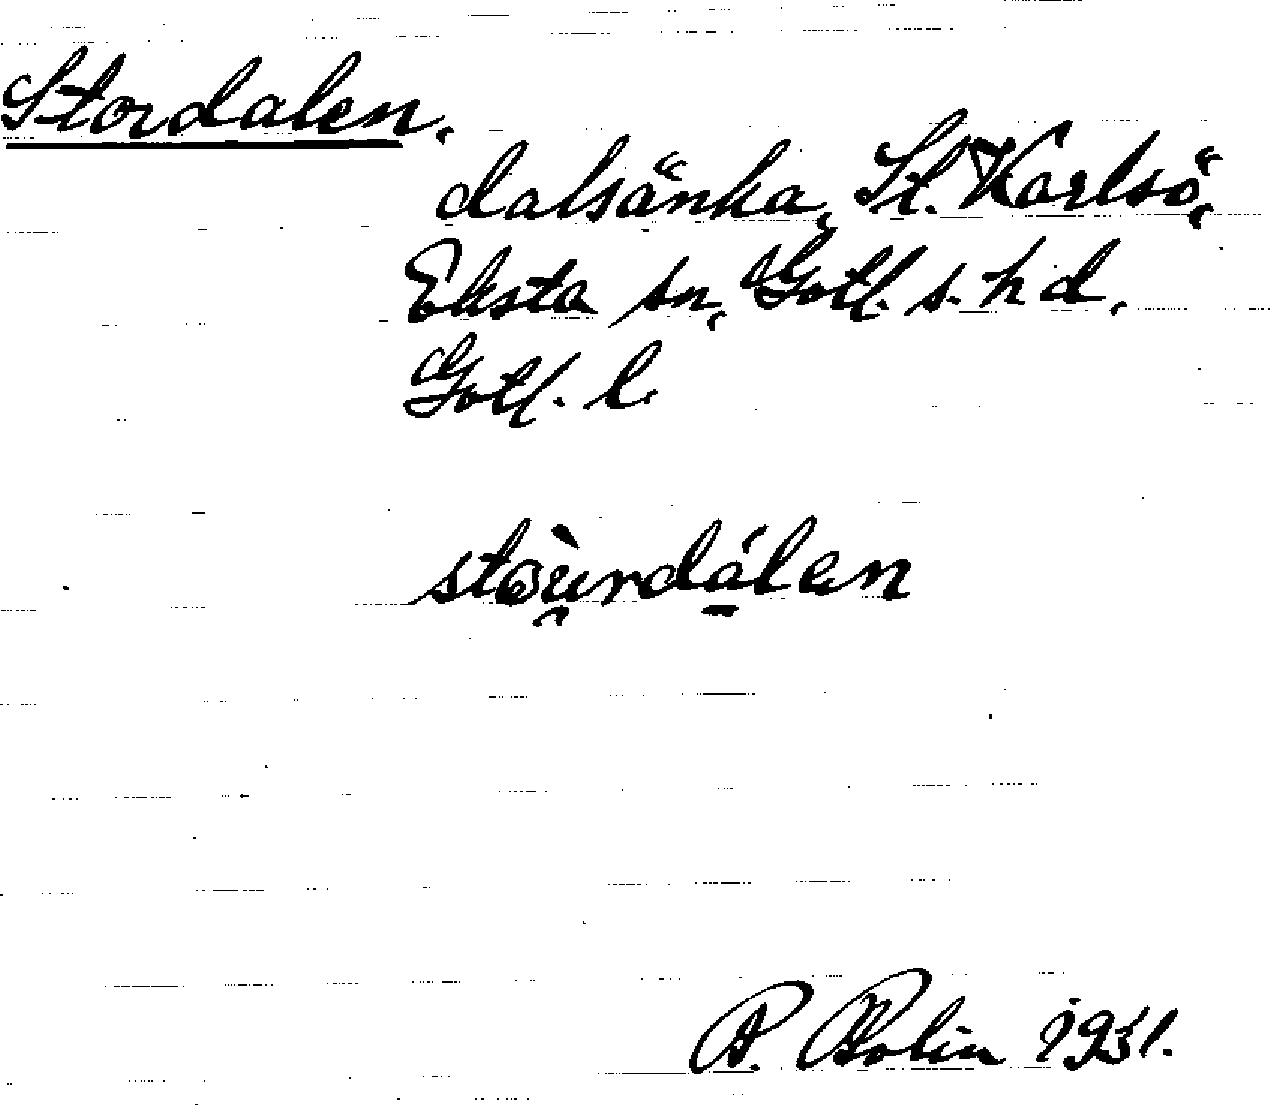 Stordalen.
dalsänka, St. Karlsö,
Eksta sn, Gotl. s. hd.,
Gotl. l.
stɷù̯rdá̱len
P. Bolin 1931.